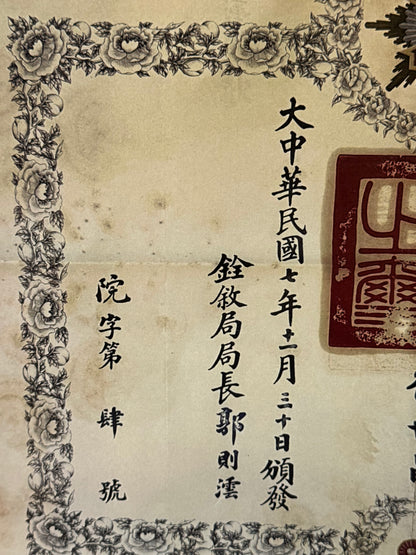 大中華民國七年十二月三十日頒發
銓敘局局長郭則澐
院字第肆號